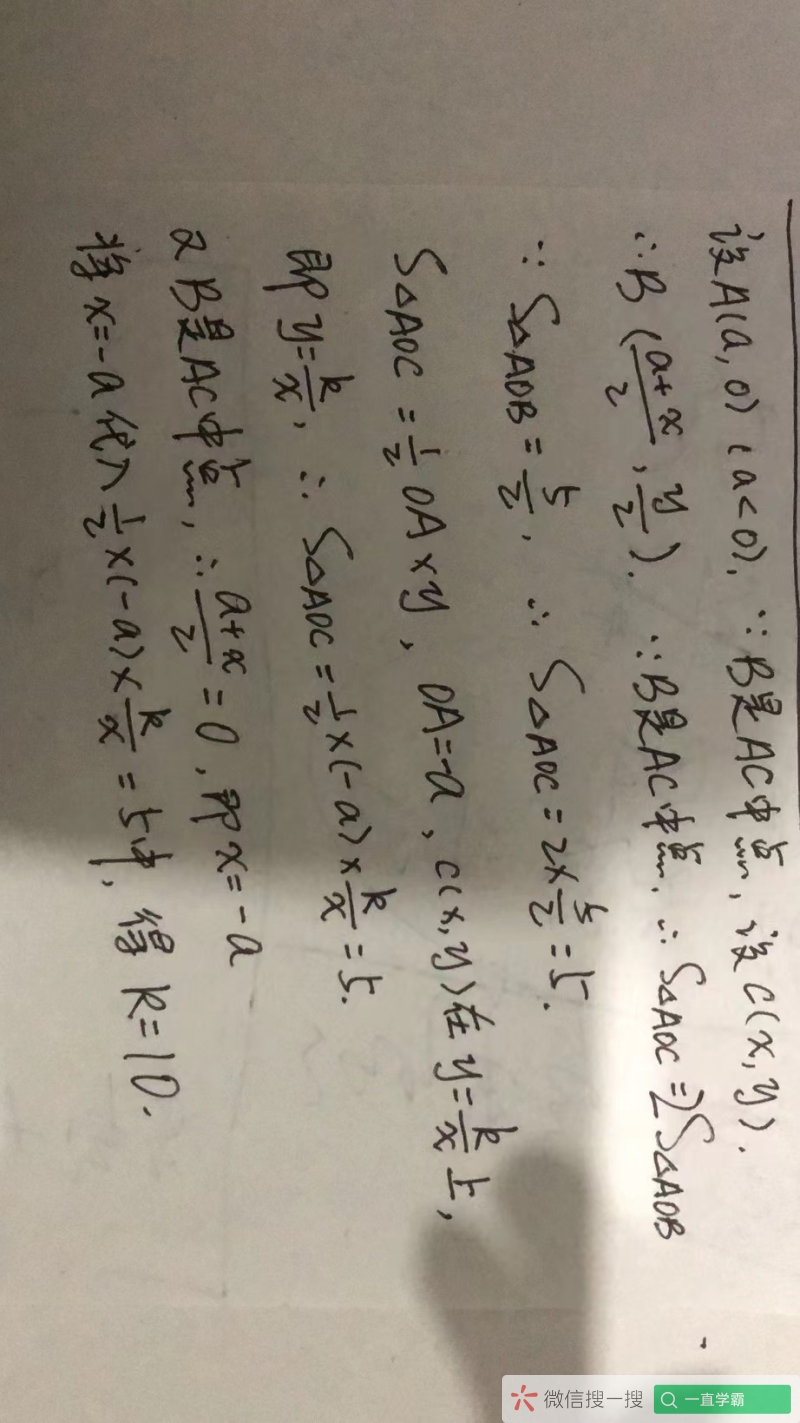 设A(a,0)(a<0),∵B是AC中点,设C(x,y).
∴B(\frac{a+x}{2},\frac{y}{2}).∵B是AC中点,∴S△AOC=2S△AOB
∵S△AOB=\frac{5}{2},∴S△AOC=2×\frac{5}{2}=5.
S△AOC=\frac{1}{2}OA×y,OA=-a,C(x,y)在y=\frac{k}{x}上,
即y=\frac{k}{x},∴S△AOC=\frac{1}{2}×(-a)×\frac{k}{x}=5.
又B是AC中点,∴\frac{a+x}{2}=0,即x=-a
将x=-a代入\frac{1}{2}×(-a)×\frac{k}{x}=5中,得k=10.
微信搜一搜 一直学霸